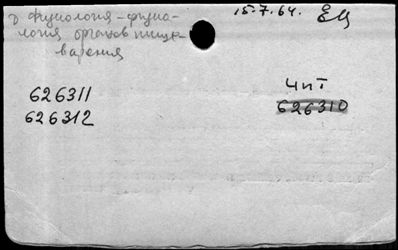 физиология - физио-
логия органов пище-
варения
15.7.64. ЕЦ
626311
626312
Ч п I
626310